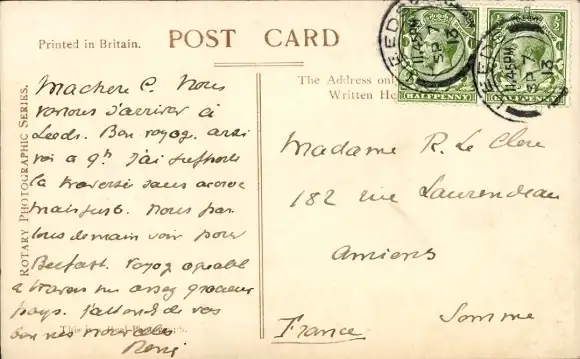 Printed in Britain.
POST CARD
The Address only
Written He
ROTARY PHOTOGRAPHIC SERIES.
LEEDS
11.45 PM
SP 7
13
LEEDS
11.45 PM
SP 7
13
HALFPENNY
HALFPENNY
Ma chère C. Nous
venons d'arriver à
Leeds. Bon voyage.
à 9h J'ai supporté
la traversée sans aucun
Nous par
tons demain soir pour
Belfast. Voyage agréable
à travers un assez gracieux
pays. J'attends de vos
bonnes nouvelles
René
This is a Real Photograph.
Madame R. Le Clerc
182 rue Laurendeau
Amiens
Somme
France